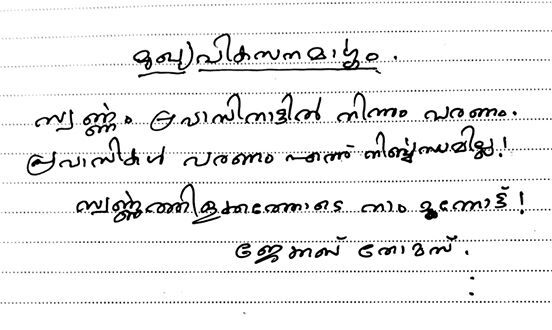 മുഖ്യവികസനമാർഗ്ഗം.
സ്വർണ്ണം പ്രവാസിനാട്ടിൽ നിന്നും വരണം.
പ്രവാസികൾ വരണം എന്ന് നിർബ്ബന്ധമില്ല!
സ്വർണ്ണത്തിളക്കത്തോടെ നാം മുന്നോട്ട്!
ജേക്കബ് തോമസ്.
: